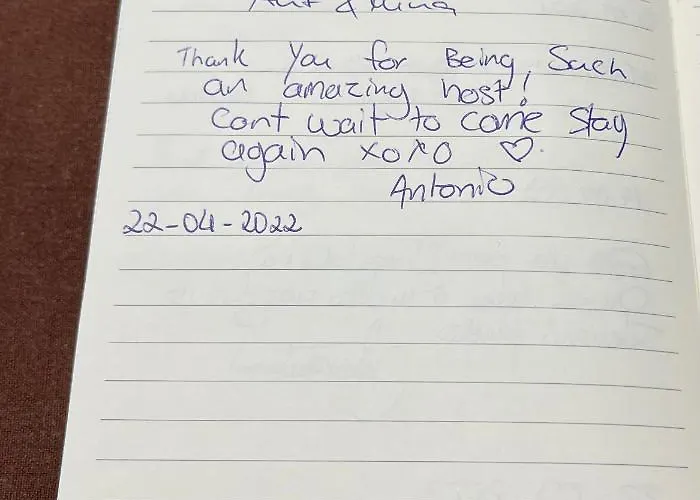 Thank You for Being, Such
an amazing host!
Cant wait to come stay
again xoxo ♡.
Antonio
22-04-2022